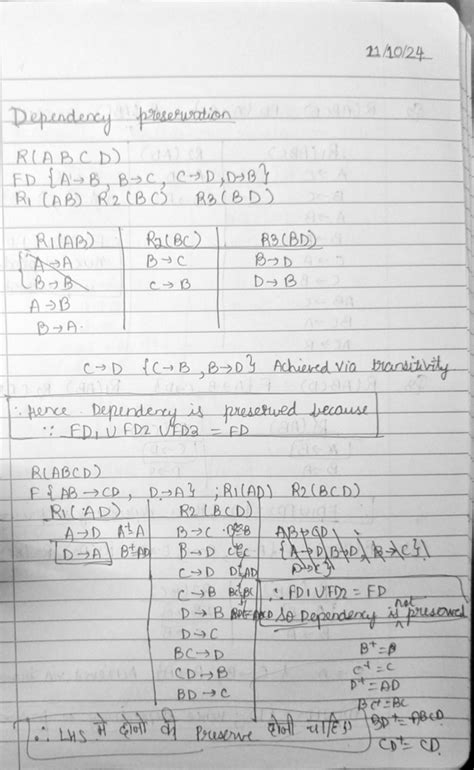 11/10/24
Dependency preservation
R(ABCD)
FD {A→B, B→C, C→D, D→B}
R1 (AB) R2(BC) R3(BD)
R1(AB) R2(BC) R3(BD)
A→A B→C B→D
B→B C→B D→B
A→B
B→A.
C→D {C→B, B→D} Achieved via transitivity
∴ hence Dependency is preserved because
∵ FD1 ∪ FD2 ∪ FD3 = FD
R(ABCD)
F{AB→CD, D→A} ; R1(AD) R2(BCD)
R1(AD) R2(BCD)
A→D A⁺=A B→C B⁺=B AB→CD
D→A B→D C⁺=C {A→D, B→D,
C→D D⁺=AD
C→B BC⁺=BC ∴ FD1∪FD2 = FD
D→B So Dependency is not preserved
D→C B⁺=B
BC→D C⁺=C
CD→B D⁺=AD
BD→C BC⁺=BC
BD⁺=ABCD
∴ LHS में दोनो की Preserve होनी चाहिए
CD⁺=CD.